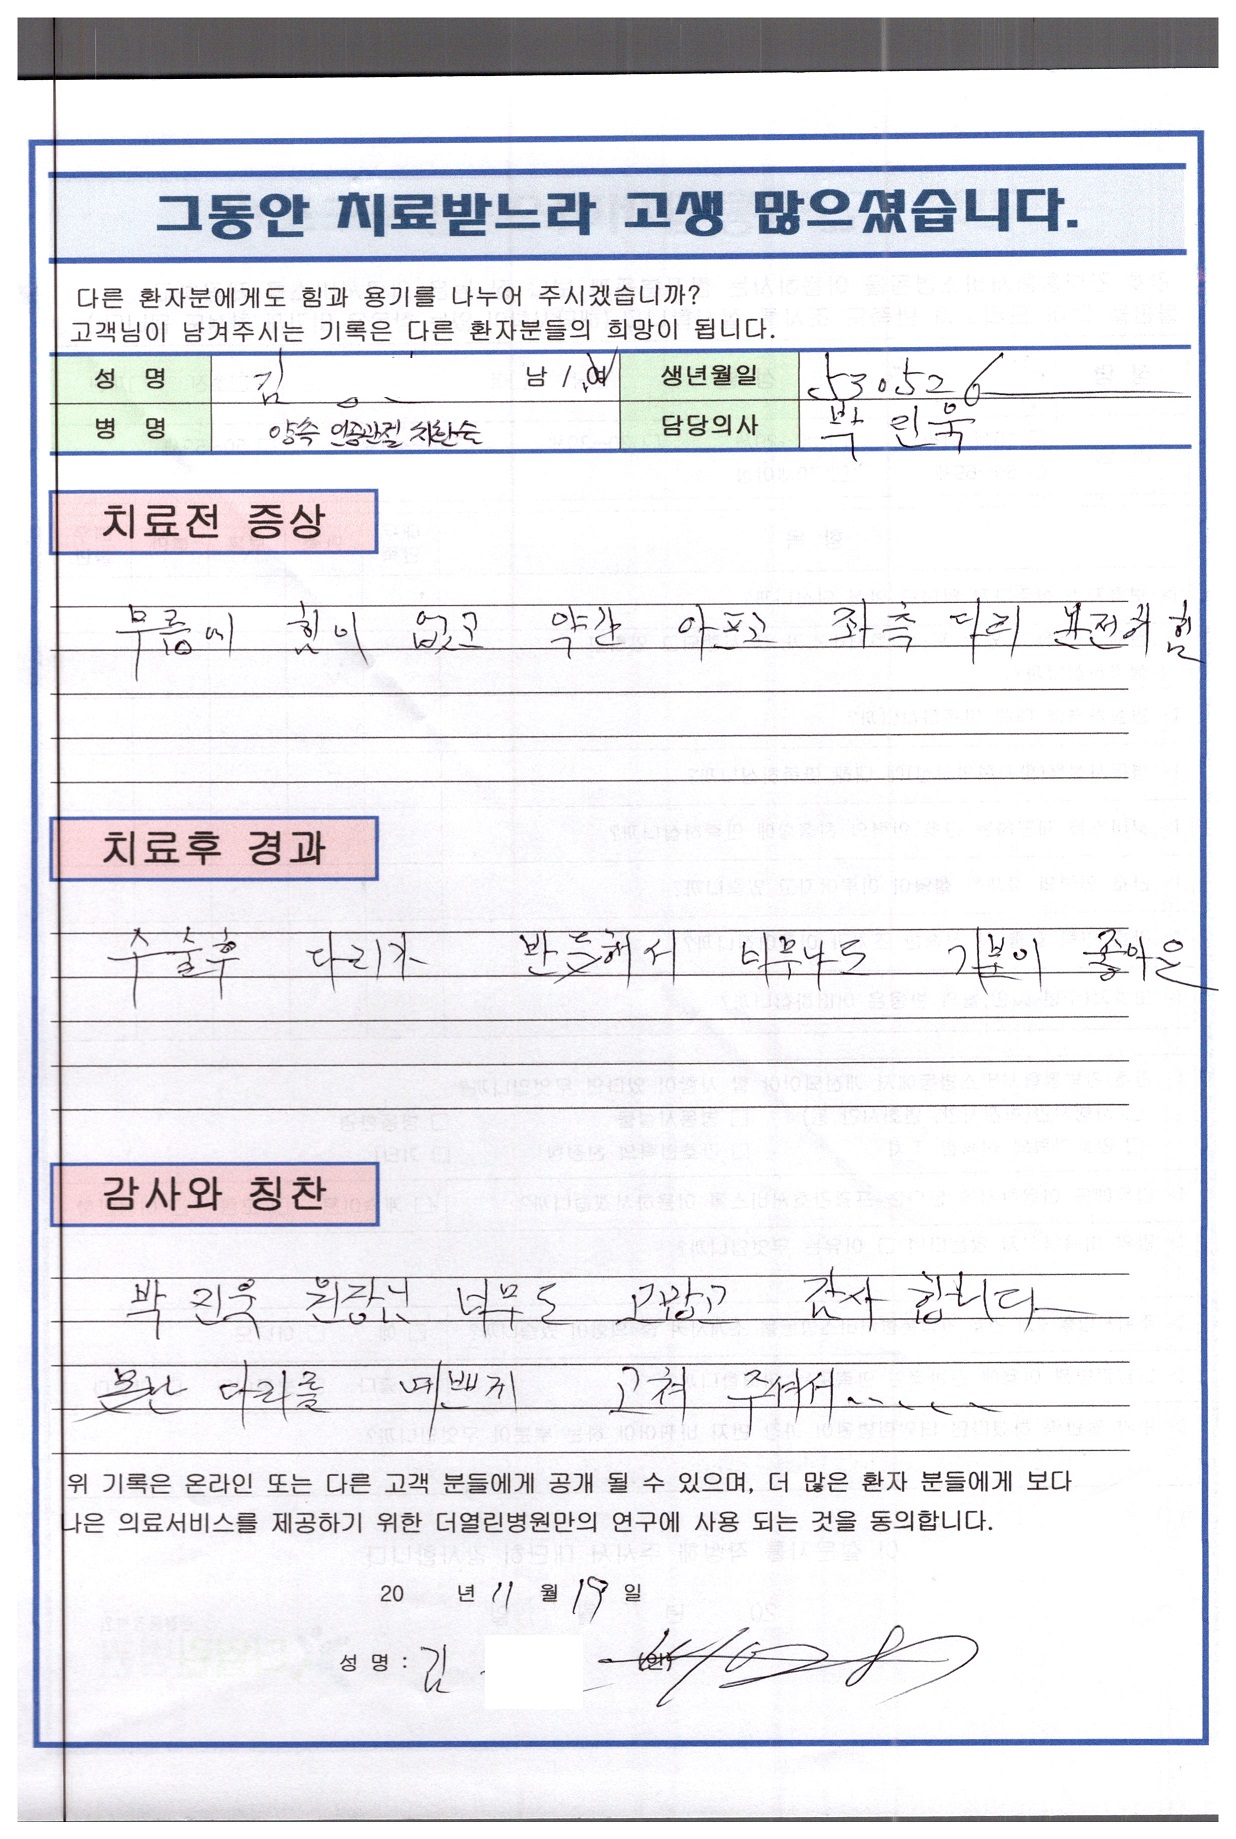 그동안 치료받느라 고생 많으셨습니다.
다른 환자분에게도 힘과 용기를 나누어 주시겠습니까?
고객님이 남겨주시는 기록은 다른 환자분들의 희망이 됩니다.
성 명 김 남 / 여 생년월일 530526
병 명 양측 인공관절 치환술 담당의사 박 진욱
치료전 증상
무릎에 힘이 없고 약간 아프고 좌측 다리 힘
치료후 경과
수술후 다리가 반듯해서 너무나도 기분이 좋아은
감사와 칭찬
박 진욱 원장님 너무도 고맙고 감사 합니다
못난 다리를 예쁘게 고쳐 주셔서.....
위 기록은 온라인 또는 다른 고객 분들에게 공개 될 수 있으며, 더 많은 환자 분들에게 보다
나은 의료서비스를 제공하기 위한 더열린병원만의 연구에 사용 되는 것을 동의합니다.
20 년 11 월 19 일
성 명 : 김 (인)